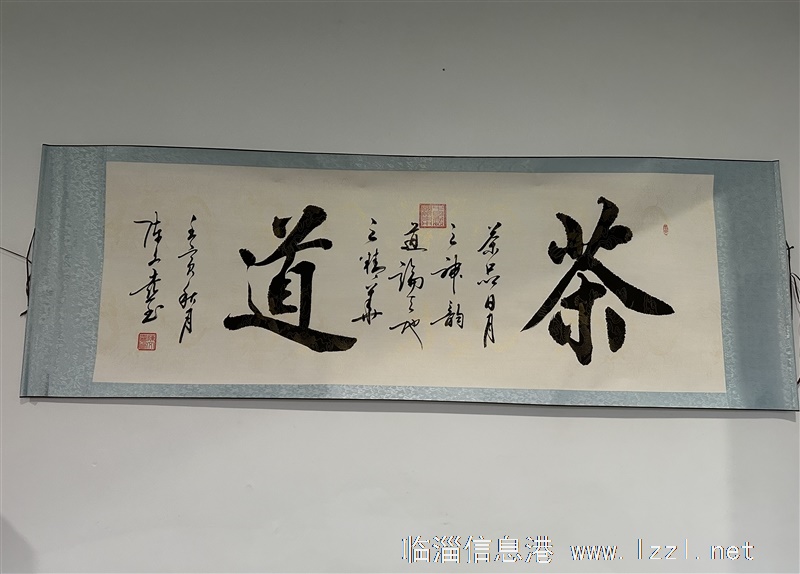 茶
茶品日月
之神韵
道
道论天地
之精华
壬寅秋月
临淄信息港 www.lzzl.net